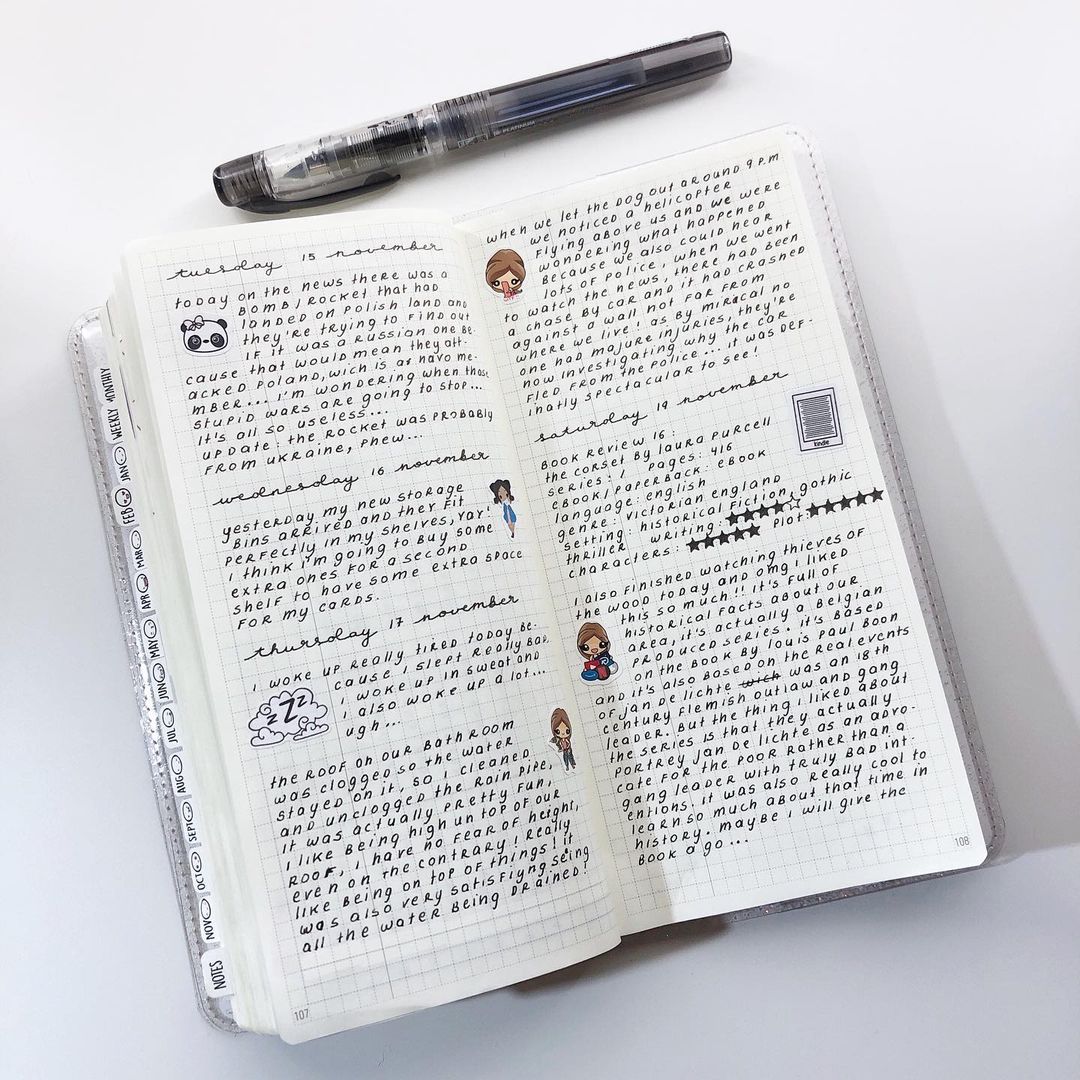 PLATINUM
WEEKLY MONTHLY
JAN
FEB
MAR
APR
MAY
JUN
JUL
AUG
SEPT
OCT
NOV
NOTES
tuesday 15 november
today on the news there was a
bomb/rocket that had
landed on Polish land and
they're trying to find out
if it was a Russian one be-
cause that would mean they att-
acked Poland, wich is a navo me-
mber... I'm wondering when those
stupid wars are going to stop...
It's all so useless...
update: the rocket was probably
from Ukraine, phew...
wednesday 16 november
yesterday my new storage
bins arrived and they fit
perfectly in my shelves, yay!
I think I'm going to buy some
extra ones for a second
shelf to have some extra space
for my cards.
thursday 17 november
I woke up really tired today be-
cause I slept really bad,
I woke up in sweat and
I also woke up a lot...
ugh...
zZz
the roof on our bathroom
was clogged so the water
stayed on it, so I cleaned
and unclogged the rain pipe,
it was actually pretty fun,
I like being high un top of our
roof, I have no fear of height,
even on the contrary! I really
like being on top of things! It
was also very satisfiyng seing
all the water being drained!
107
when we let the dog out around 9 p.m
we noticed a helicopter
flying above us and we were
wondering what happened
because we also could hear
lots of police, when we went
to watch the news, there had been
a chase by car and it had crashed
against a wall not far from
where we live! as by miracal no
one had majure injuries, they're
now investigating why the car
fled from the police... it was def-
inatly spectacular to see!
saturday 19 november
kindle
Book review 16:
the corset by Laura Purcell
series: / Pages: 416
ebook/paperback: ebook
language: english
genre: victorian england
setting: historical fiction, gothic
thriller writing: ★★★★☆ Plot: ★★★★★
characters: ★★★★★
I also finished watching thieves of
the wood today and omg I liked
this so much!! It's full of
historical facts about our
area, it's actually a Belgian
produced series. It's based
on the book by Louis Paul Boon
and it's also based on the real events
of Jan de Lichte wich was an 18th
century Flemish outlaw and gang
leader. But the thing I liked about
the series is that they actually
portrey Jan de Lichte as an advo-
cate for the poor rather than a
gang leader with truly bad int-
entions. it was also really cool to
learn so much about that time in
history. Maybe I will give the
book a go...
108